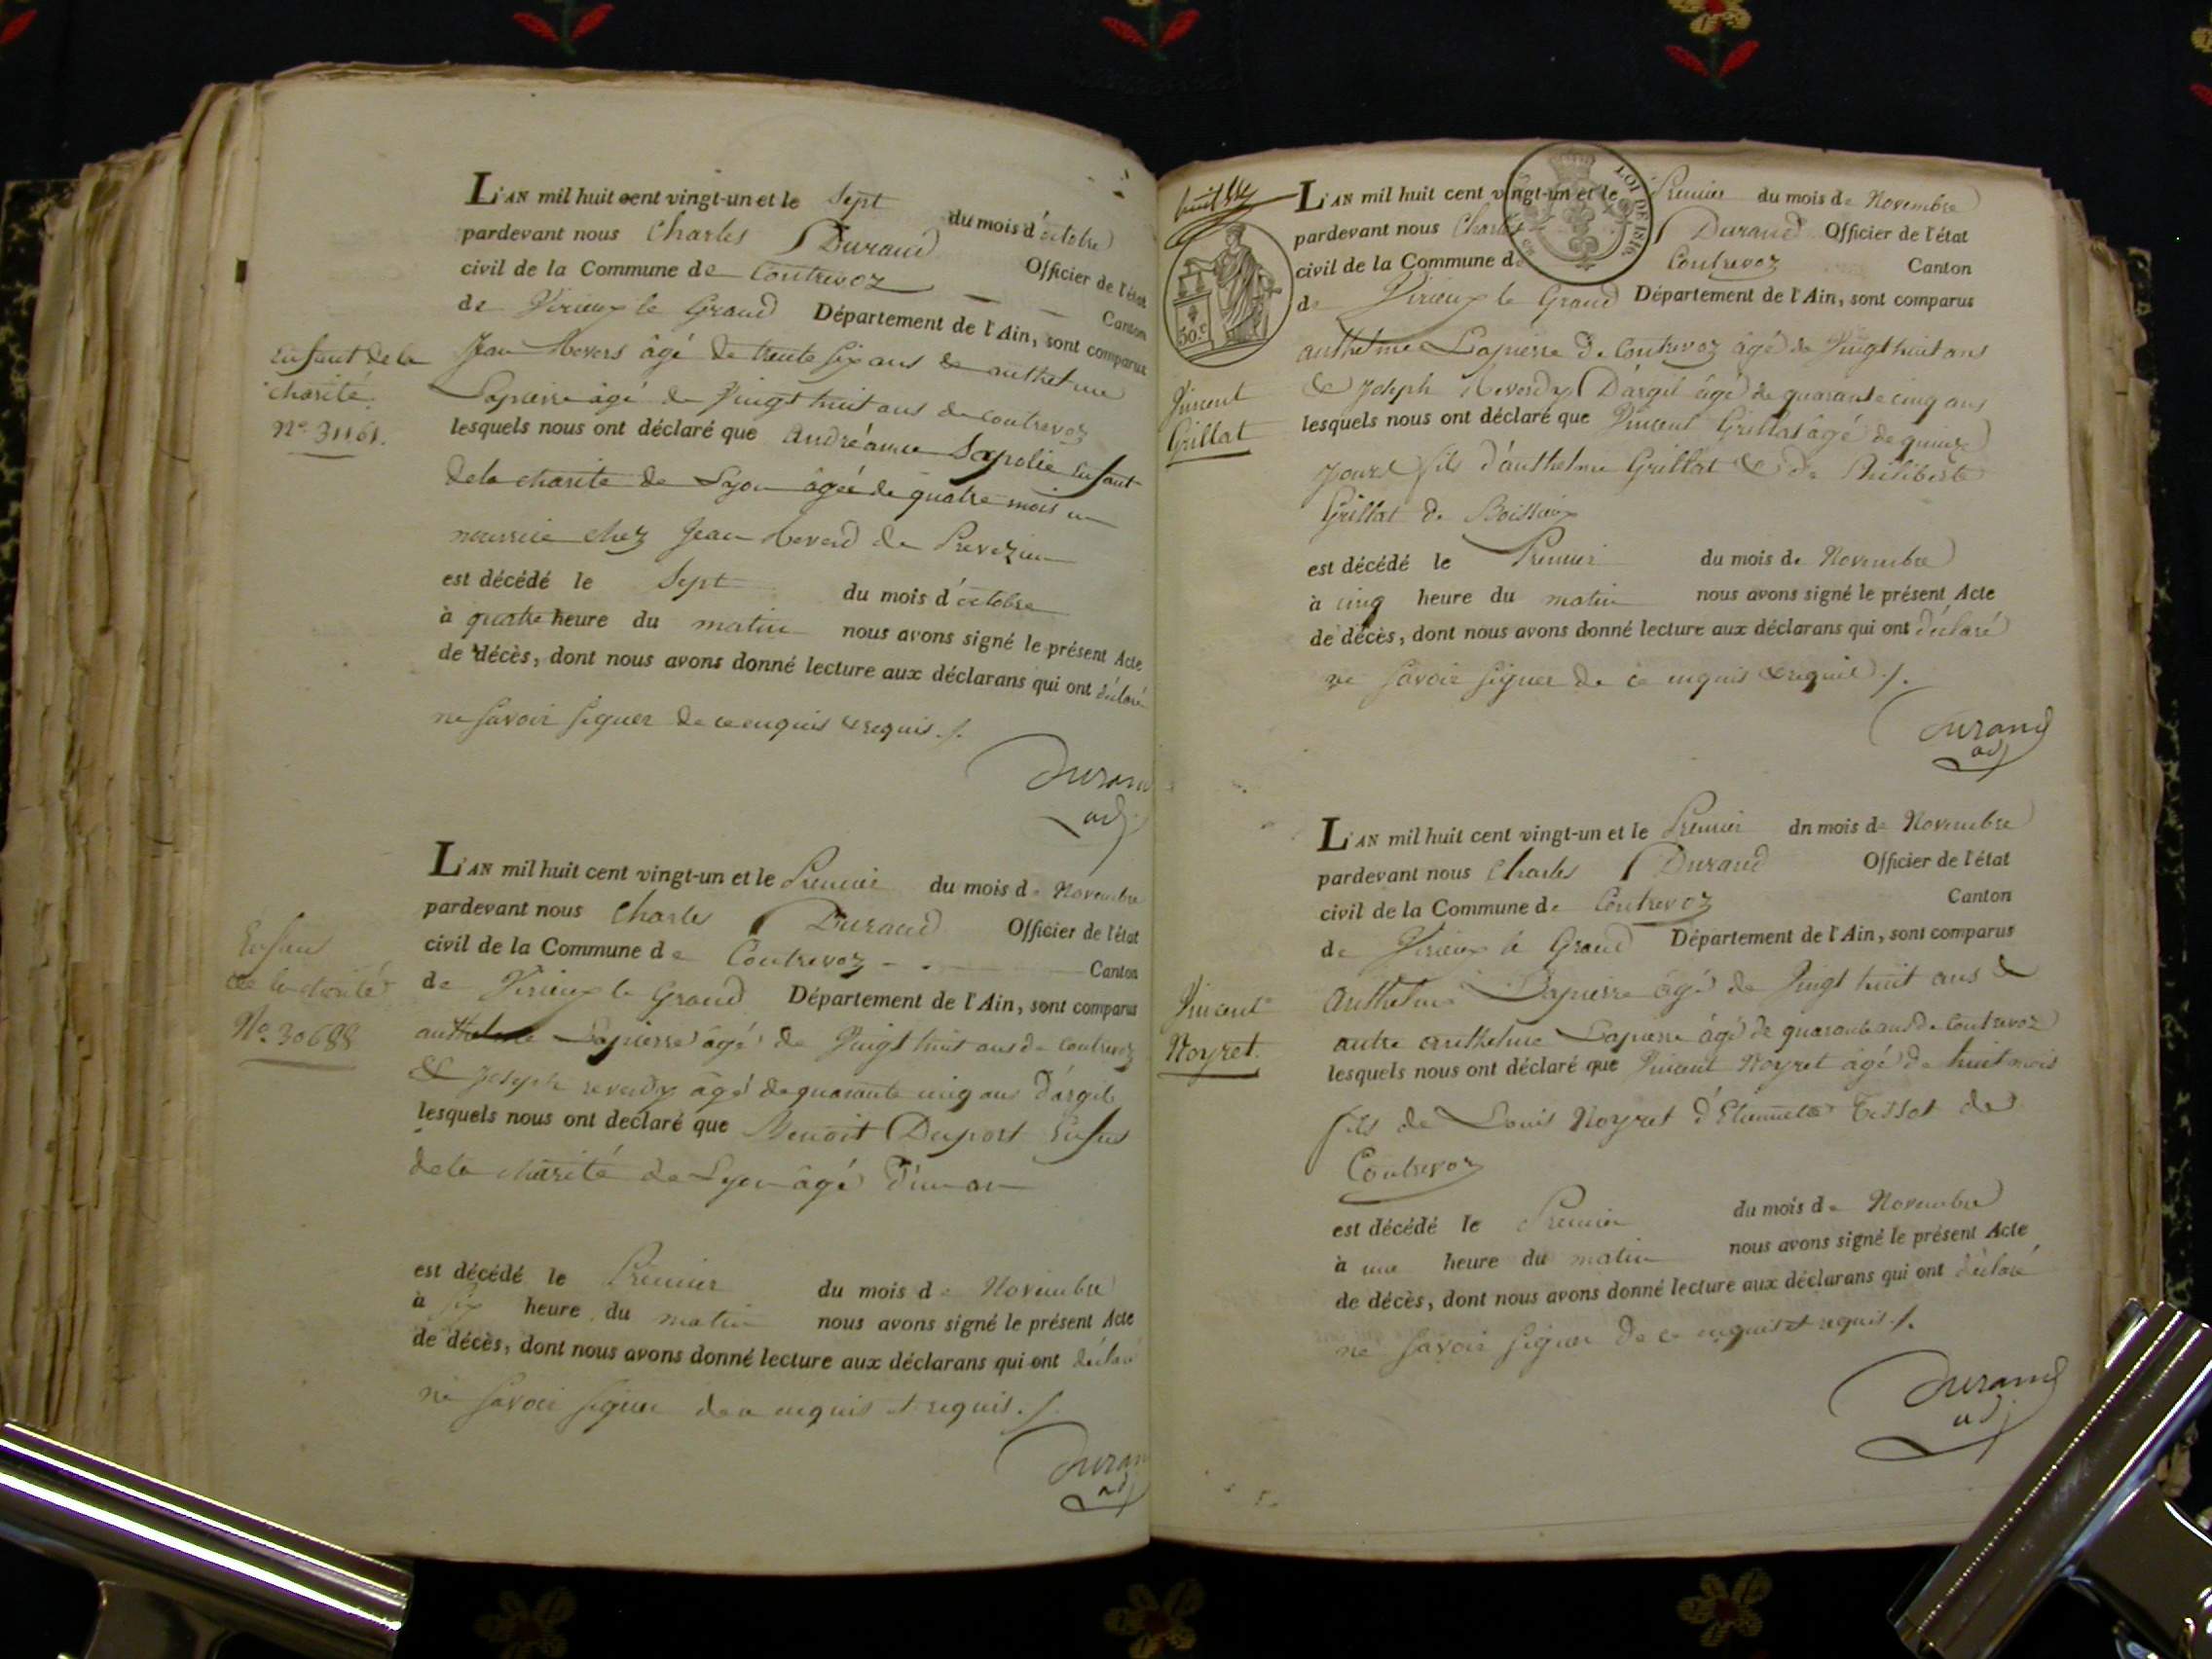 L'AN mil huit cent vingt-un et le Sept du mois d'octobre
pardevant nous Charles Durand Officier de l'état
civil de la Commune de Contrevoz Canton
de Virieux le Grand Département de l'Ain, sont comparus
Enfant de la
charité
N° 31161.
Jean Revers âgé de trente six ans & anthelme
Lapierre âgé de Vingt huit ans de contrevoz
lesquels nous ont déclaré que Andréanne Sapolie Enfant
de la charité de Lyon âgée de quatre mois en
nourrice chez Jean Reverd de Prevezieu
est décédé le Sept du mois d'octobre
à quatre heure du matin nous avons signé le présent Acte
de décès, dont nous avons donné lecture aux déclarans qui ont déclaré
ne savoir signer de ce enquis & requis ./.
Durand
adj
L'AN mil huit cent vingt-un et le Premier du mois de Novembre
pardevant nous Charles Durand Officier de l'état
civil de la Commune de Contrevoz Canton
de Virieux le Grand Département de l'Ain, sont comparus
Enfan
de la charité
N° 30688
anthelme Lapierre âgé de Vingt huit ans de Contrevoz
& Joseph reverdy âgé de quarante cinq ans d'argil
lesquels nous ont declaré que Benoit Duport Enfan
de la charité de Lyon âgé d'un an
est décédé le Premier du mois de Novembre
à six heure du matin nous avons signé le présent Acte
de décès, dont nous avons donné lecture aux déclarans qui ont déclaré
ne savoir signer de ce enquis et requis ./.
Durand
adj
huit
LOI DE 1816
50 c
L'AN mil huit cent vingt-un et le Premier du mois de Novembre
pardevant nous Charles Durand Officier de l'état
civil de la Commune de Contrevoz Canton
de Virieux le Grand Département de l'Ain, sont comparus
Vincent
Grillat
anthelme Lapierre de Contrevoz âgé de Vingt huit ans
& Joseph Reverdy D'argil âgé de quarante cinq ans
lesquels nous ont déclaré que Vincent Grillat âgé de quinze
jours fils d'anthelme Grillat & de Philiberte
Grillat de Boissieux
est décédé le Premier du mois de Novembre
à cinq heure du matin nous avons signé le présent Acte
de décès, dont nous avons donné lecture aux déclarans qui ont déclaré
ne savoir signer de ce enquis & requis ./.
Durand
adj
L'AN mil huit cent vingt-un et le Premier dn mois de Novembre
pardevant nous Charles Durand Officier de l'état
civil de la Commune de Contrevoz Canton
de Virieux le Grand Département de l'Ain, sont comparus
Vincent
Noyret.
Anthelme Lapierre âgé de Vingt huit ans &
autre anthelme Lapierre âgé de quarante ans de Contrevoz
lesquels nous ont déclaré que Vincent Noyret âgé de huit mois
fils de Louis Noyret & d'Etiennette Tissot de
Contrevoz
est décédé le Premier du mois de Novembre
à une heure du matin nous avons signé le présent Acte
de décès, dont nous avons donné lecture aux déclarans qui ont déclaré
ne savoir signer de ce enquis et requis ./.
Durand
adj